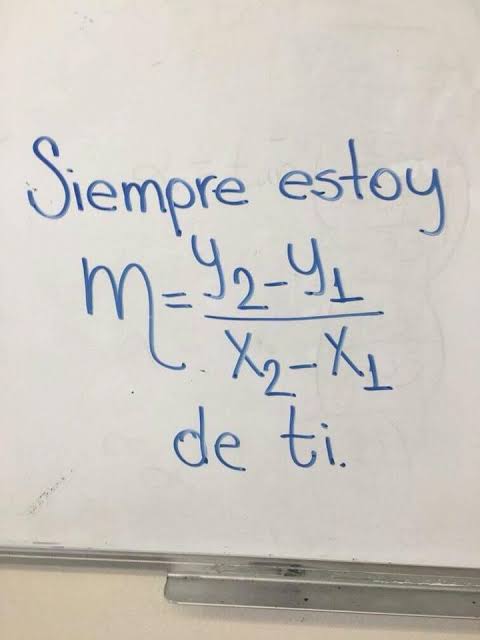 Siempre estoy
m = y₂ - y₁
x₂ - x₁
de ti.